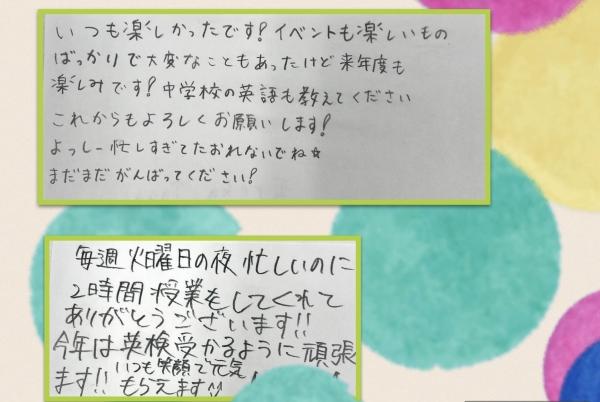 いつも楽しかったです！イベントも楽しいもの
ばっかりで大変なこともあったけど来年度も
楽しみです！中学校の英語も教えてください
これからもよろしくお願いします！
よっしー忙しすぎてたおれないでね☆
まだまだがんばってください！
毎週火曜日の夜忙しいのに
2時間授業をしてくれて
ありがとうございます!!
今年は英検受かるように頑張
ます!!いつも笑顔で元気
もらえます!!